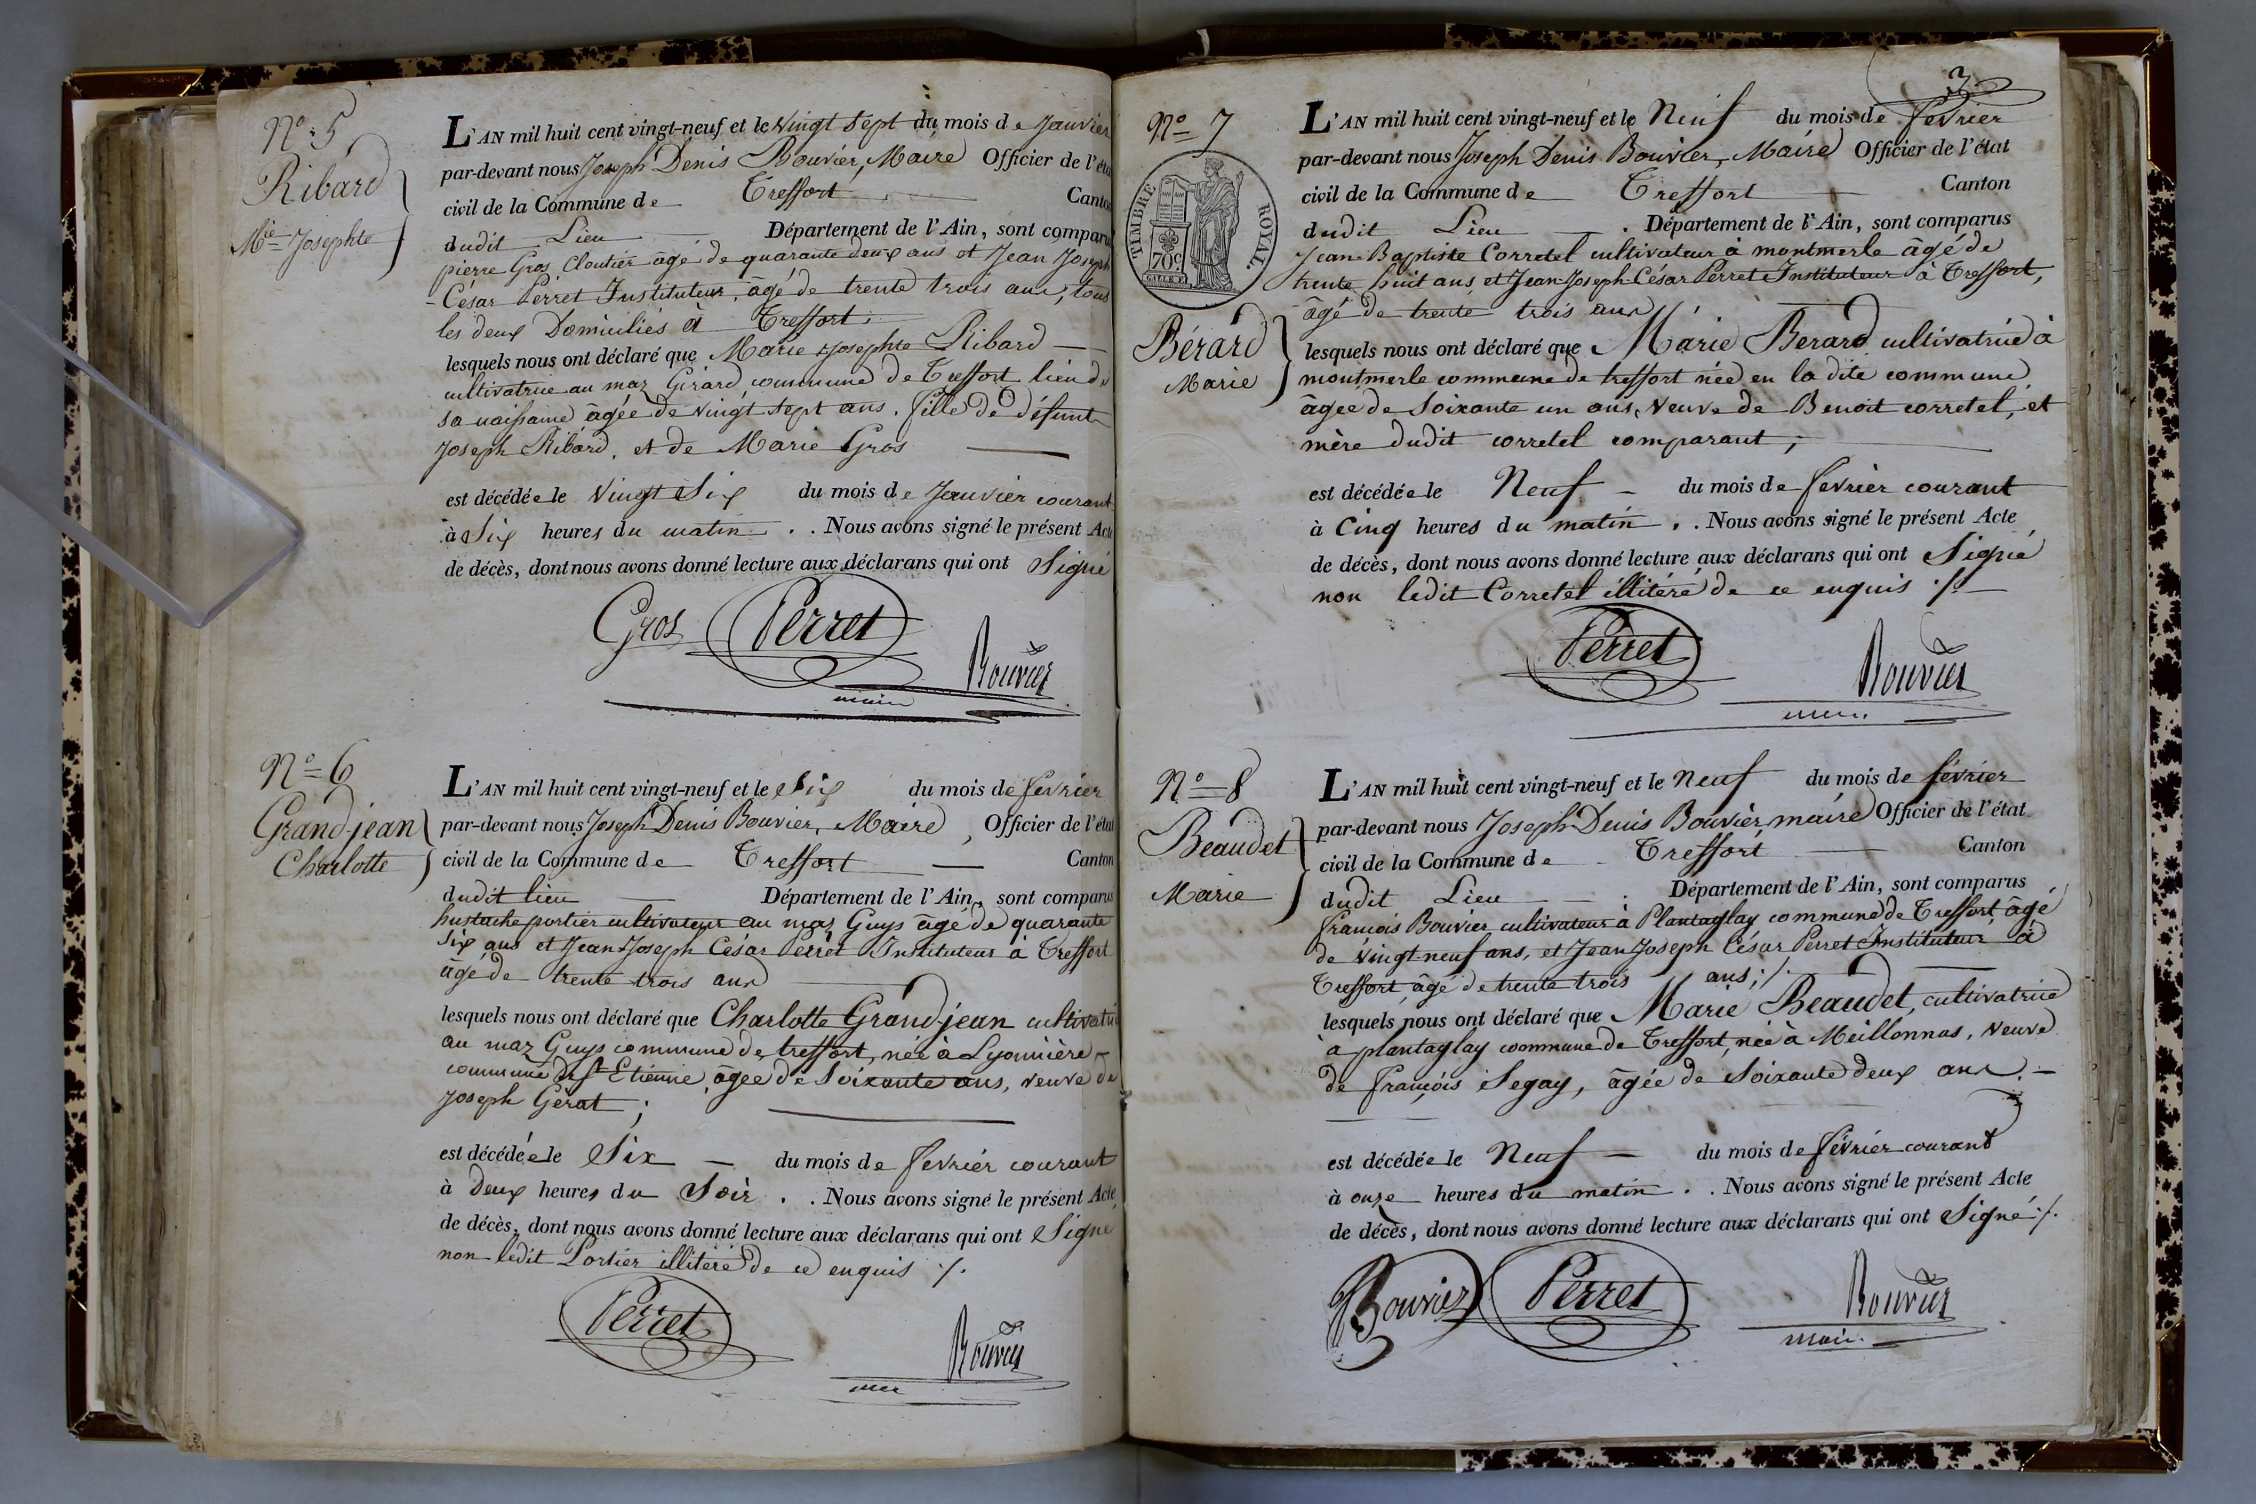 N.o 5
Ribard
M.ie Josephte
L'AN mil huit cent vingt-neuf et le vingt sept du mois de Janvier
par-devant nous Joseph Denis Bouvier, Maire Officier de l'état
civil de la Commune de Treffort Canton
dudit Lieu Département de l'Ain, sont comparus
pierre Gros, Cloutier âgé de quarante deux ans et Jean Joseph
César Perret Instituteur, âgé de trente trois ans, tous
les deux Domiciliés à Treffort;
lesquels nous ont déclaré que Marie Josephte Ribard
cultivatrice au maz Girard commune de Treffort lieu de
sa naissance âgée de vingt sept ans, fille de défunt
Joseph Ribard, et de Marie Gros
est décédée le vingt Six du mois de Janvier courant
à Six heures du matin . . Nous avons signé le présent Acte
de décès, dont nous avons donné lecture aux déclarans qui ont Signé
Gros Perret
Bouvier
maire
N.o 6
Grand-jean
Charlotte
L'AN mil huit cent vingt-neuf et le Six du mois de février
par-devant nous Joseph Denis Bouvier, Maire, Officier de l'état
civil de la Commune de Treffort Canton
dudit lieu Département de l'Ain, sont comparus
hustache portier cultivateur au maz Guys âgé de quarante
Six ans et Jean Joseph César Perret Instituteur à Treffort
âgé de trente trois ans
lesquels nous ont déclaré que Charlotte Grand-jean cultivatrice
au maz Guys commune de treffort, née à Lyonnière
commune de St Etienne, âgée de Soixante ans, veuve de
Joseph Gérat;
est décédée le Six du mois de février courant
à Deux heures du Soir . . Nous avons signé le présent Acte
de décès, dont nous avons donné lecture aux déclarans qui ont Signé
non ledit Portier illitéré de ce enquis ./.
Perret
Bouvier
3
N.o 7
TIMBRE ROYAL.
70c.
Bérard
Marie
L'AN mil huit cent vingt-neuf et le Neuf du mois de février
par-devant nous Joseph Denis Bouvier, Maire Officier de l'état
civil de la Commune de Treffort Canton
dudit Lieu . Département de l'Ain, sont comparus
Jean-Baptiste Corretel cultivateur à montmerle âgé de
trente huit ans et Jean-Joseph-César Perret Instituteur à Treffort,
âgé de trente trois ans
lesquels nous ont déclaré que Marie Berard cultivatrice à
montmerle commune de treffort née en la dite commune
âgée de Soixante un ans, veuve de Benoit corretel, et
mère dudit corretel comparant;
est décédée le Neuf du mois de février courant
à Cinq heures du matin . . Nous avons signé le présent Acte
de décès, dont nous avons donné lecture aux déclarans qui ont Signé
non ledit Corretel illitéré de ce enquis ./.
Perret
Bouvier
N.o 8
Beaudet
Marie
L'AN mil huit cent vingt-neuf et le Neuf du mois de février
par-devant nous Joseph Denis Bouvier maire Officier de l'état
civil de la Commune de Treffort Canton
dudit Lieu . Département de l'Ain, sont comparus
françois Bouvier cultivateur à Plantaglay commune de Treffort âgé
de vingt neuf ans, et Jean Joseph César Perret Instituteur à
Treffort âgé de trente trois ans; ./.
lesquels nous ont déclaré que Marie Beaudet, cultivatrice
à plantaglay commune de Treffort, née à Meillonnas, veuve
de françois Segay, âgée de Soixante deux ans.
est décédée le Neuf du mois de février courant
à onze heures du matin . . Nous avons signé le présent Acte
de décès, dont nous avons donné lecture aux déclarans qui ont Signé ./.
Bouvier Perret Bouvier
maire